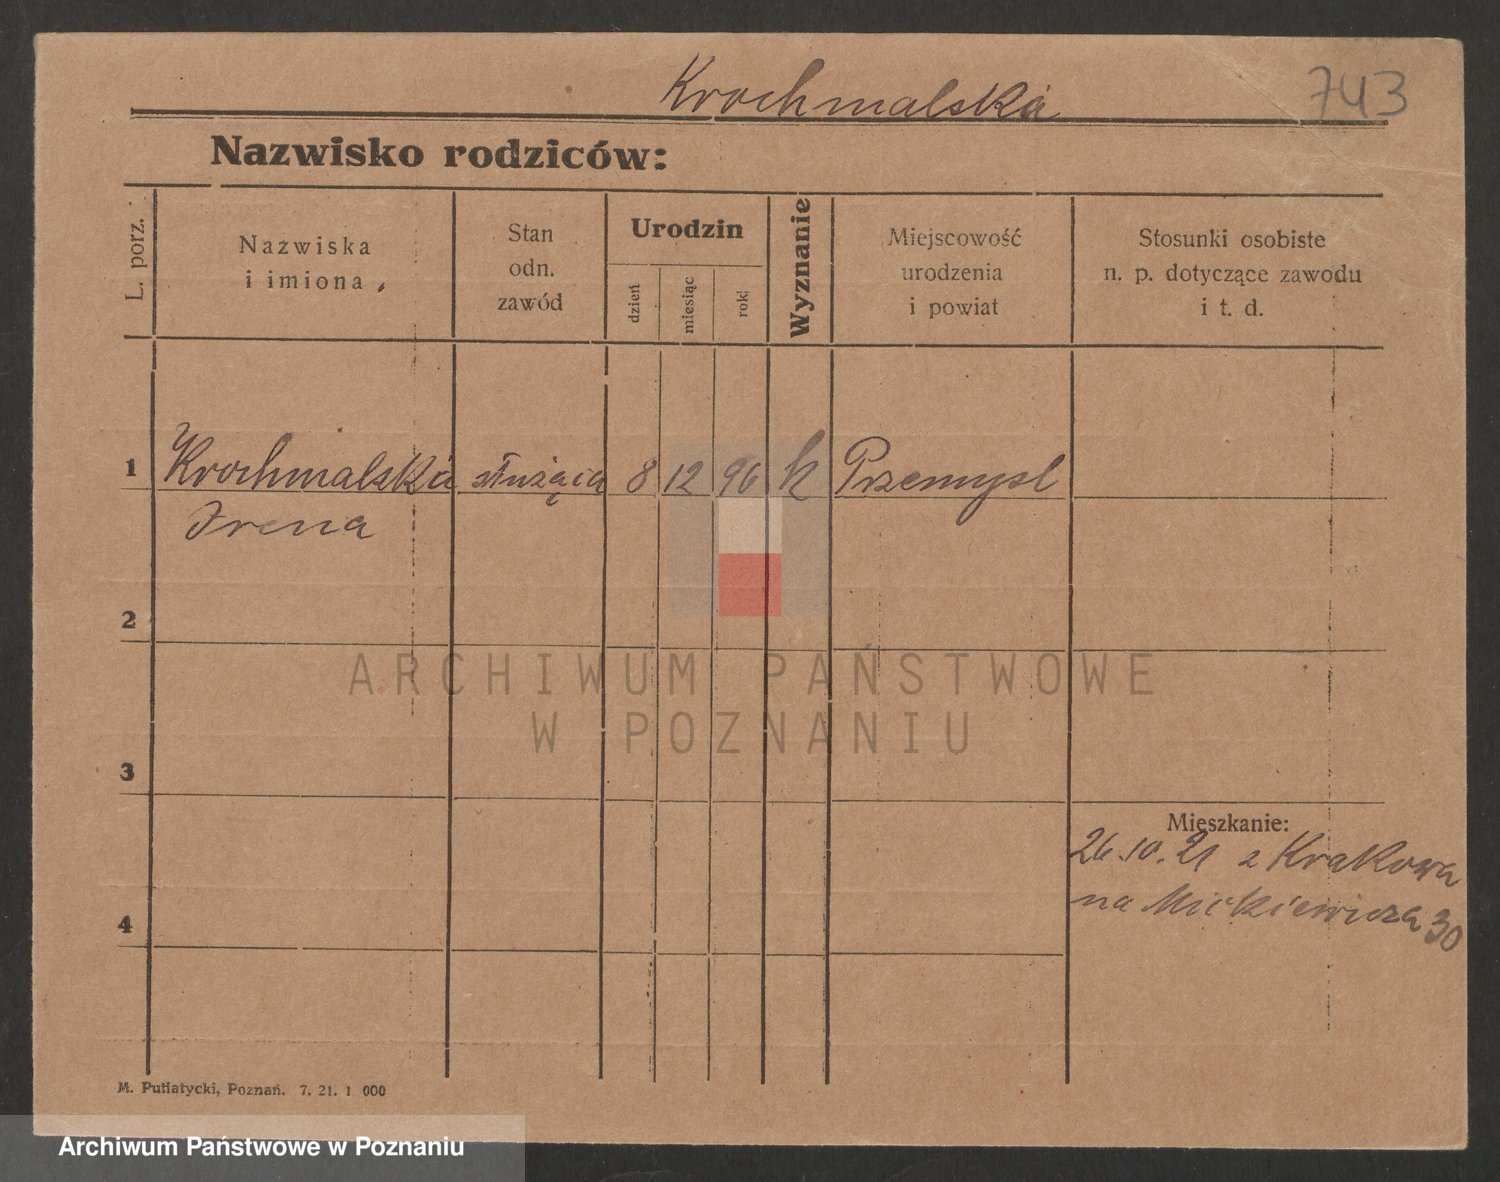 Krochmalska
743
Nazwisko rodziców:
L. porz.
Nazwiska
i imiona
Stan
odn.
zawód
Urodzin
dzień
miesiąc
rok
Wyznanie
Miejscowość
urodzenia
i powiat
Stosunki osobiste
n. p. dotyczące zawodu
i t. d.
1 Krochmalska służąca 8 12 96 k Przemysl
Irena
2
ARCHIWUM PAŃSTWOWE
W POZNANIU
3
Mieszkanie:
26.10.21 z Krakowa
na Mickiewicza 30
4
M. Putiatycki, Poznań. 7. 21. 1 000
Archiwum Państwowe w Poznaniu